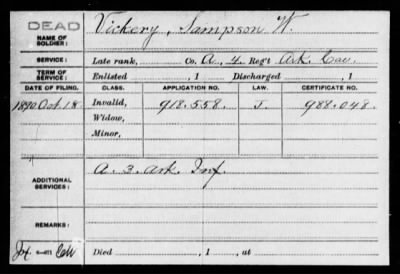 DEAD
NAME OF SOLDIER: Vickery, Sampson W.
SERVICE: Late rank, Co. A, 4 Reg't Ark Cav.
TERM OF SERVICE: Enlisted , 1 Discharged , 1
DATE OF FILING. CLASS. APPLICATION NO. LAW. CERTIFICATE NO.
1890 Oct. 18 Invalid, 918.558. J. 988.048.
Widow,
Minor,
ADDITIONAL SERVICES: A. 3. Ark. Inf.
REMARKS:
Died , 1 , at